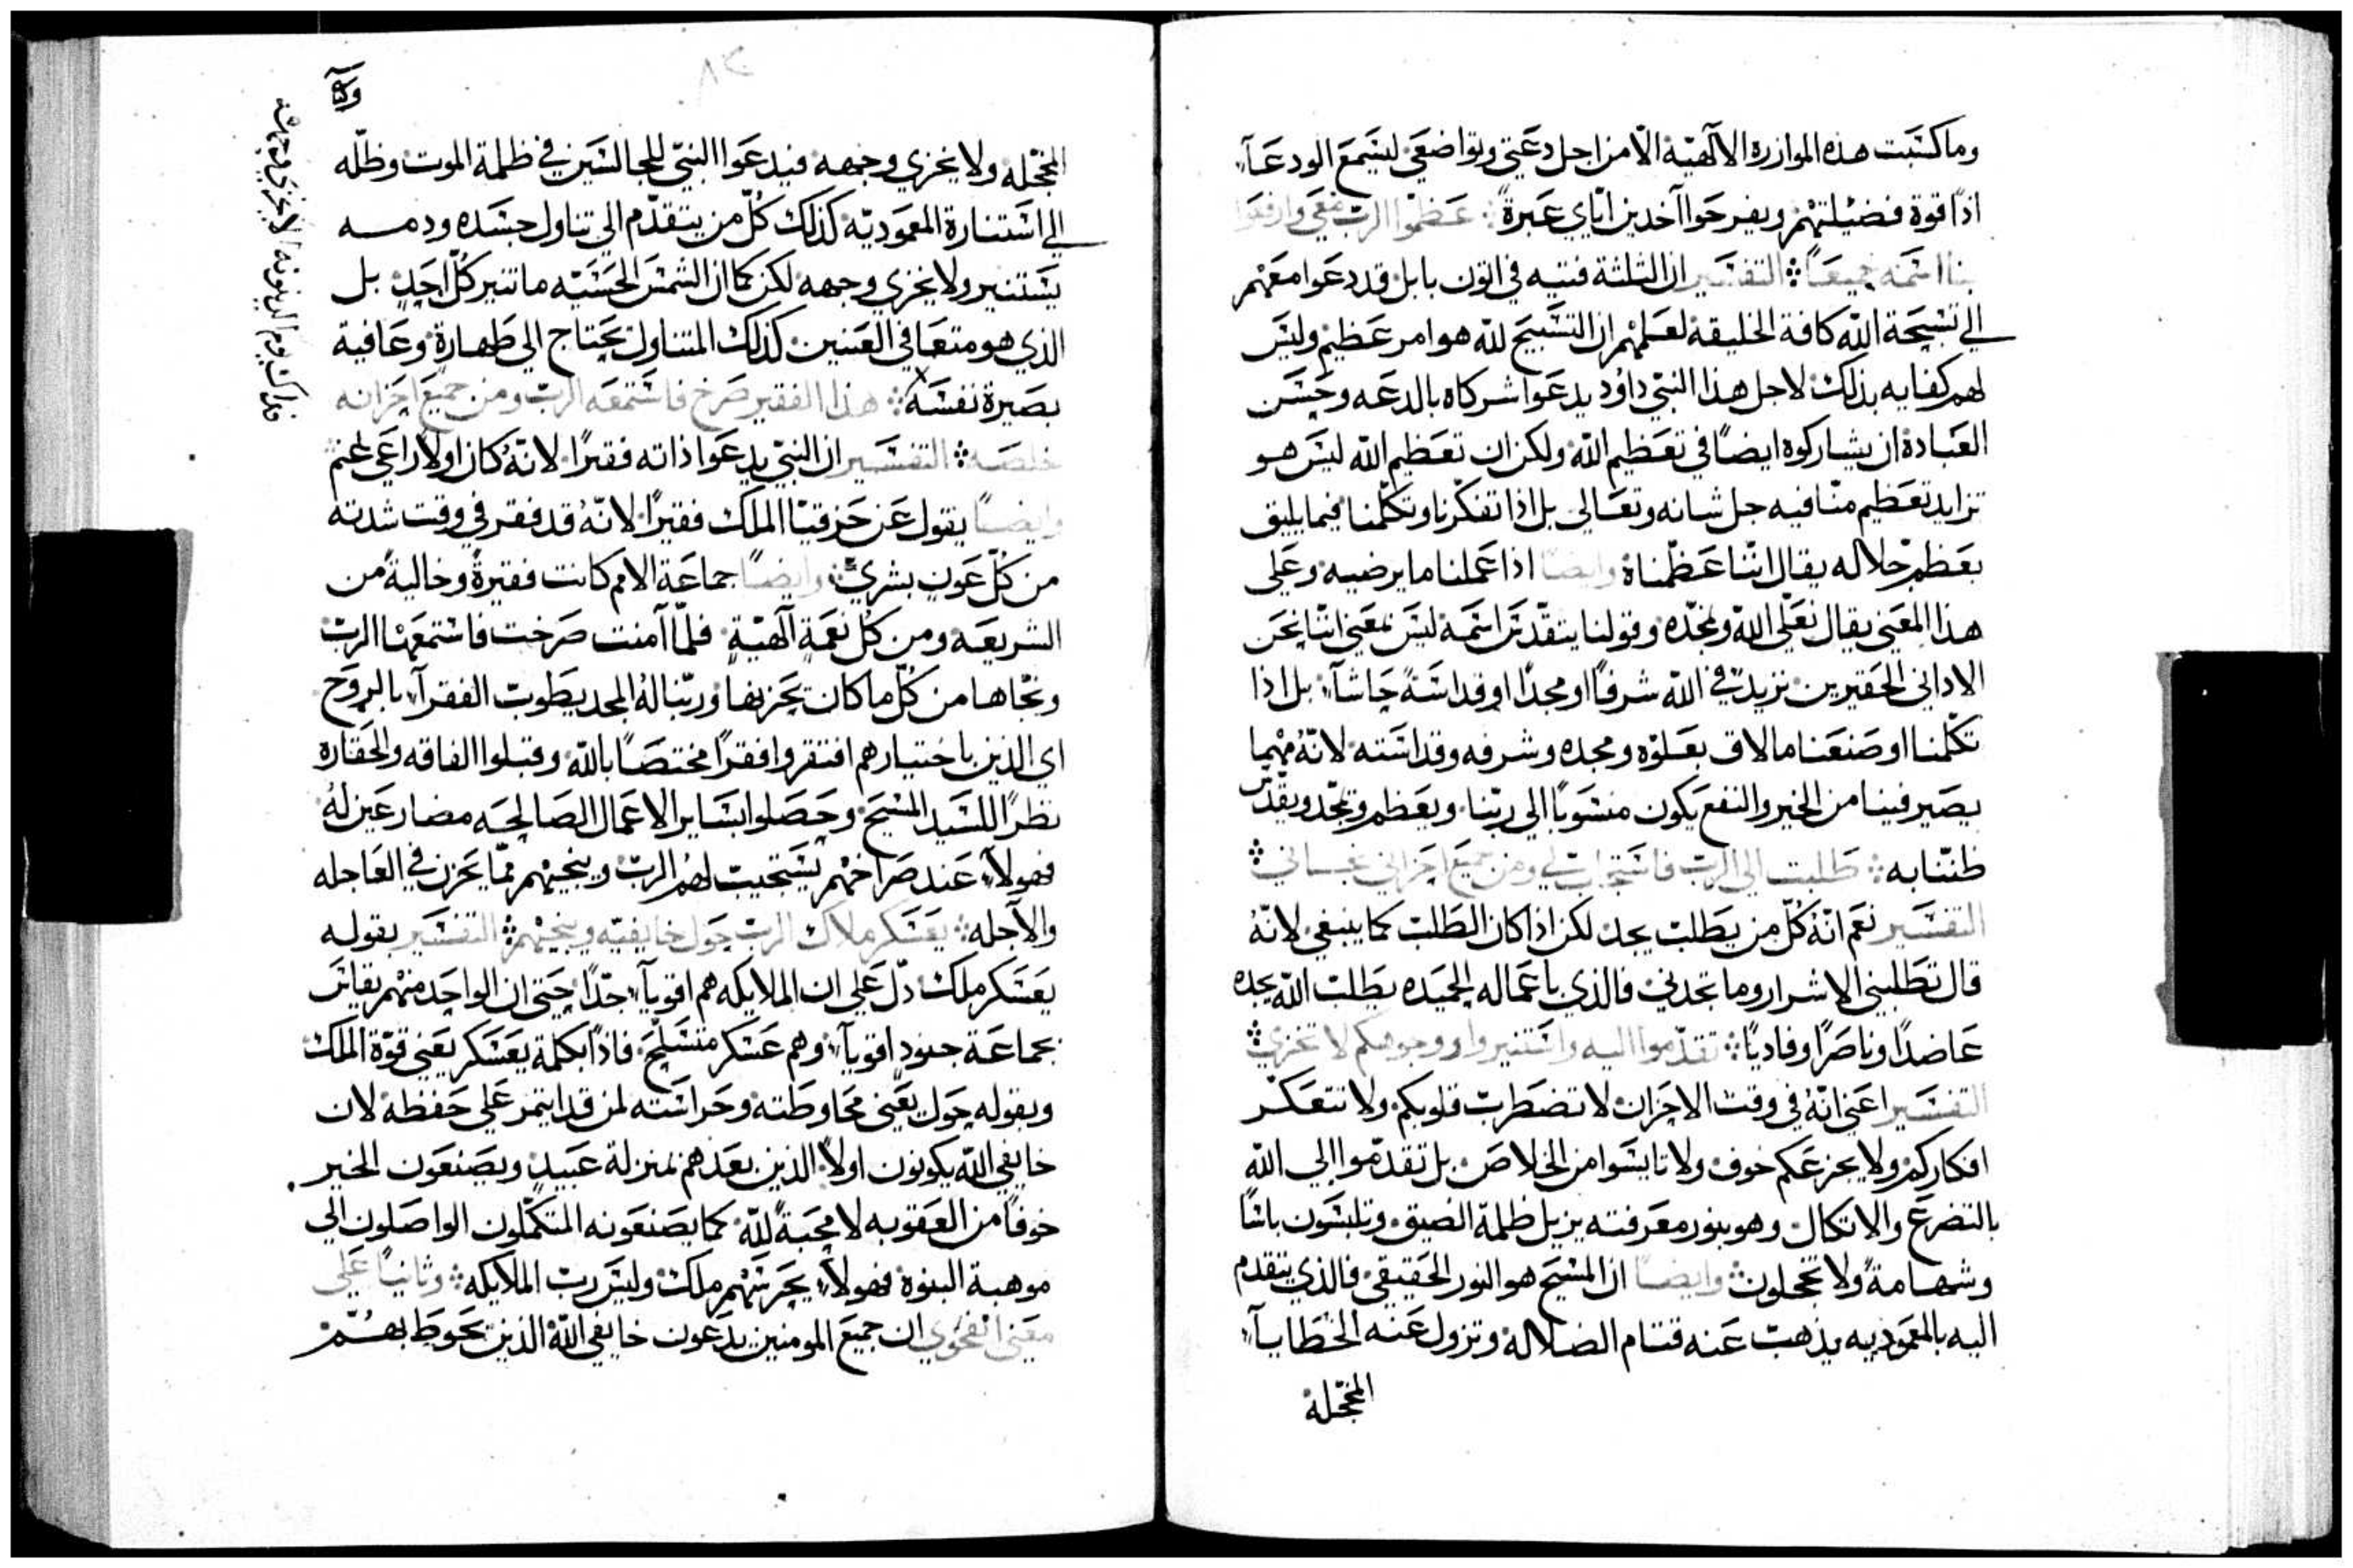 وما كسَبت هذه الموازرة الالٓهيّة الّا من اجل دعَتي وتواضعَي ليسَمعَ الودعَآء
اذًا قوة فضيْلتهْم ويفرحَوا آخدين ايّاي عَبرةً ⁘ عَظمّوا الربّ معَي وارفعَوا
بنا اسَمه جميعَاً ⁘ التفسَير ان الثلثة فتيه في اتون بابل قد دعَوا معَهْم
الي تسْبحَة اللّه كافة الخليقة لعَلمهْم ان التسَبيحَ للّه هو امر عَظيم وليسَ
لهم كفايه بذلك لاجل هذا النبيّ داوُد يدعَوا شركاه بالدعَه وحَسَن
العَبادة ان يشاركوه ايضًا في تعَظيم اللّه ولكن ان تعَظيم اللّه ليسَ هو
تزايد تعَظيم منّا فيه جل شانه وتعَالي بل اذا تفكّرنا وتكلّمنا فيما يليق
بعَظم جلاله يقال انّنا عَظّمناهُ وايضًا اذا عَملنا ما يرضيه وعَلي
هذا المعَني يقال نعَلّي اللّه ونمجّده وقولنا يتقدّسَ اسَمه ليسَ بمعَني انّنا نحَن
الاداني الحَقيرين نزيد في اللّه شرفاً او مجدًا او قداسَةً حَاشآء بل اذا
تكلّمنا او صنعَنا ما لاق بعَلوّه ومجده وشرفه وقداسَته لانّهُ مهْما
يصَير فينا من الخير والنفعَ يكون منسَوبًا الي ربّنا ويعَظم ويمجّد ويقدّسَ
ظنّنا به ⁘ طَلبت الي الربّ فاسَتجابَ لي ومن جميعَ احَزاني نجاني ⁘
التفسَير نعَم انّهُ كُلّ من يطَلبَ يجد لكن اذا كان الطَلبَ كما ينبغي لانّهُ
قال تطَلبني الاشرار وما تجدني فالذي باعَماله الحَميده يطَلبَ اللّه يجده
عَاضدًا وناصَرًا وفاديًا ⁘ تقدّموا اليه واسَتنيروا ووجوهكم لا تخزي ⁘
التفسَير اعَني انّهُ في وقت الاحَزان لا تضطَربَ قلوبكم ولا تتعَكّر
افكاركم ولا يجزعَكم خوف ولا تايسَوا من الخلاصَ بل تقدّموا الي اللّه
بالتضرعَ والاتكال وهو بنور معَرفته يزيل ظلمة الضيق وتلبسَون باسًا
وشهامةً ولا تخجلون ⁘ وايضًا ان المسَيحَ هو النور الحَقيقي فالذي يتقدم
اليه بالمعَموديه يذهبَ عَنه قتام الضلالة وتزول عَنه الخطَايآء
المخجّلة
٨٣
المخجّلة ولا يخزي وجهه فيدعَوا النبيّ للجالسَين في ظلمة الموت وظلّه
الي اسَتنارة المعَموديّة كذلك كُلّ من يتقدّم الي تناول جسَده ودمه
يسَتنير ولا يخزي وجهه لكن كما ان الشمسَ الحَسَيّه ما تنير كُلّ احَدٍ بل
الذي هو متعَافي العَينين كذلك المتناول يحَتاج الي طَهارة وعَافية
بصَيرة نفسَه ⁘ هذا الفقير صَرخ فاسَتمعَه الربّ ومن جميعَ احَزانه
خلصَه ⁘ التفسَير ان النبيّ يدعَوا ذاته فقيرًا لانّهُ كان اولاً راعَي غنم
وايضًا يقول عَن حَزقيّا الملك فقيرًا لانّهُ قد فقر في وقت شدته
من كُلّ عَونٍ بشريّ ⁘ وايضًا جماعَة الامم كانت فقيرةً وخاليةً من
الشريعَه ومن كُلّ نعَمةٍ آلهيّةٍ فلمّا آمنت صَرخت فاسَتمعَها الربّ
ونجّاها من كُلّ ما كان يحَزنها وربّنا لهُ المجد يطَوبّ الفقرآء بالروحَ
اي الذين باختيارهم افتقروا فقرًا مختصَاً باللّه وقبلوا الفاقه والحَقارة
نظرًا للسَيد المسَيحَ وحَصَلوا بسَاير الاعَمال الصَالحَه مضارعَين لهُ
فهولآء عَند صَراخهْم يسَتجيبَ لهْم الربّ وينجيهْم ممّا يحَزن في العَاجله
والآجله ⁘ يعَسَكر ملاك الربّ حَول خايفيّه وينجيهْم ⁘ التفسَير بقوله
يعَسَكر ملك دلّ عَلي ان الملايكه هم اقويآء جدًّا حَتي ان الواحَد منهْم يقايسَ
بجماعَة جنودٍ اقويآء وهم عَسَكر متسَلّحَ فاذًا بكلمة يعَسَكر يعَني قوّة الملك
وبقوله حَول يعَني محَاوطَته وحَراسَته لمن قد ايتمن عَلي حَفظه لان
خايفي اللّه يكونون اولاً الذين نعَدهم بمنزلة عَبيد ويصَنعَون الخير
خوفاً من العَقوبه لا محَبةً للّه كما يصَنعَونه المتكمّلون الواصَلون الي
موهبة البنوة فهولآء يحَرسَهْم ملك وليسَ ربّ الملايكه ⁘ وثانيًا عَلي
معَني انفحَوي ان جميعَ المومنين يدعَون خايفي اللّه الذين تحَوطَ بهمْ